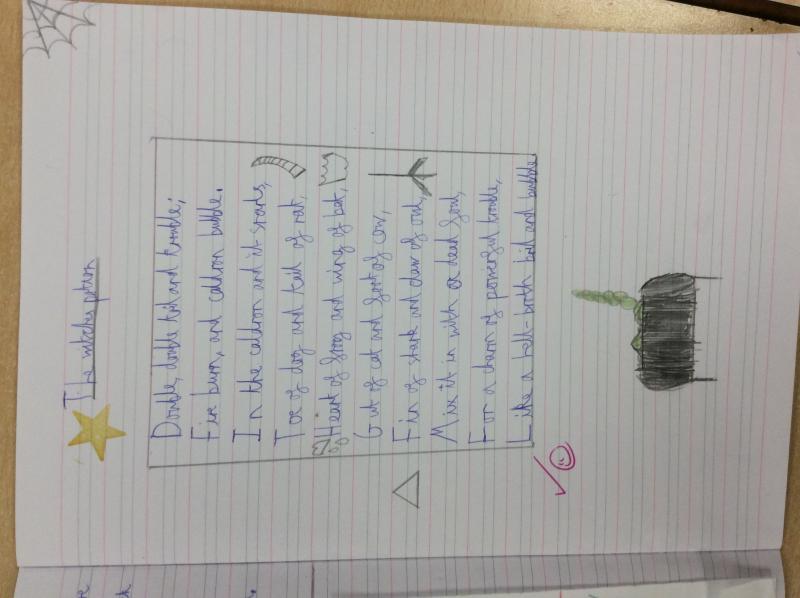 The witches potion
Double, double toil and trouble;
Fire burn, and caldron bubble.
In the caldron and it starts,
Toe of dog and tail of rat,
Heart of frog and wing of bat,
Gut of cat and foot of cow,
Fin of shark and claw of owl,
Mix it in with a dead foul,
For a charm of powerful trouble,
Like a hell-broth boil and bubble